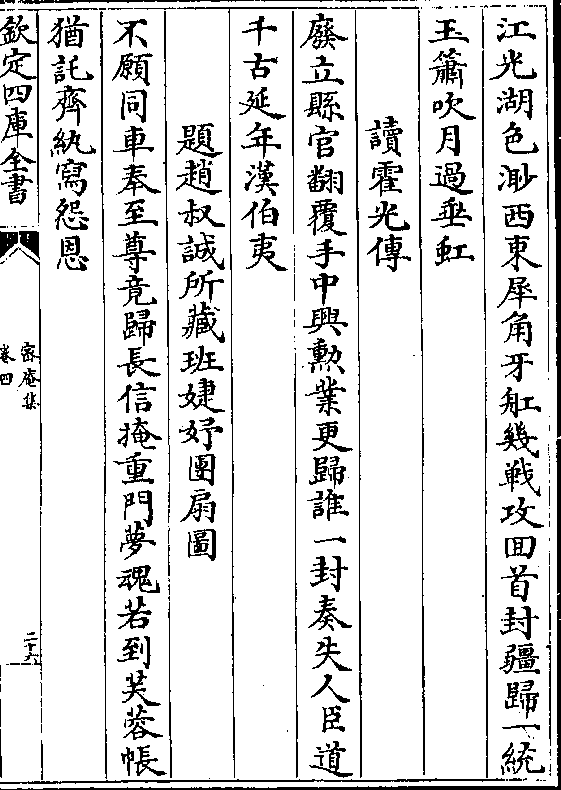 江光湖色渺西東犀角牙舡幾戰攻囬首封疆歸一統
玉簫吹月過垂虹
讀霍光傳
廢立縣官翻覆手中興勲業更歸誰一封奏失人臣道
千古延年漢伯夷
題趙叔誠所藏班婕妤團扇圖
不願同車奉至尊竟歸長信掩重門夢魂若到芙蓉帳
猶託齊紈寫怨恩
欽定四庫全書
密庵集
卷四
二十六